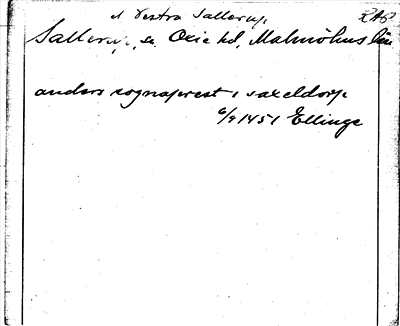 Vestra Sallerup, RAP
Sallerup, sn Oxie hd, Malmöhus län
anders sognaprest i saxeldorp
6/9 1451 Ellinge